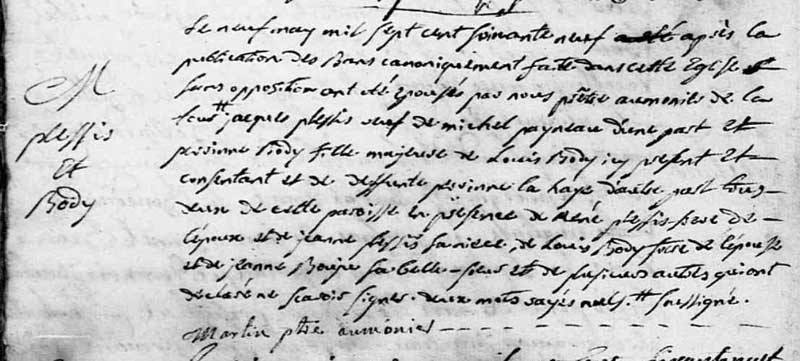 M
plessis
Et
Body
Le neuf may mil sept cent soixante neuf a esté après la
publication des Bans canoniquement faite dans cette Eglise
sans opposition ont été épousés par nous ptre aumonier de la
jacques plessis veuf de michel payneau d'une part Et
perinne Body fille majeure de Louis Body icy présent Et
consentant et de deffunte perinne la haye d'autre part tous
deux de cette paroisse En présence de René plessis frere de
l'époux et de jeanne plessis sa niece, de Louis Body frere de l'épouse
et de jeanne sa belle-sœur Et de plusieurs autres qui ont
déclaré ne scavoir signer. deux mots rayés nuls. # soussigné.
Martin ptre aumônier